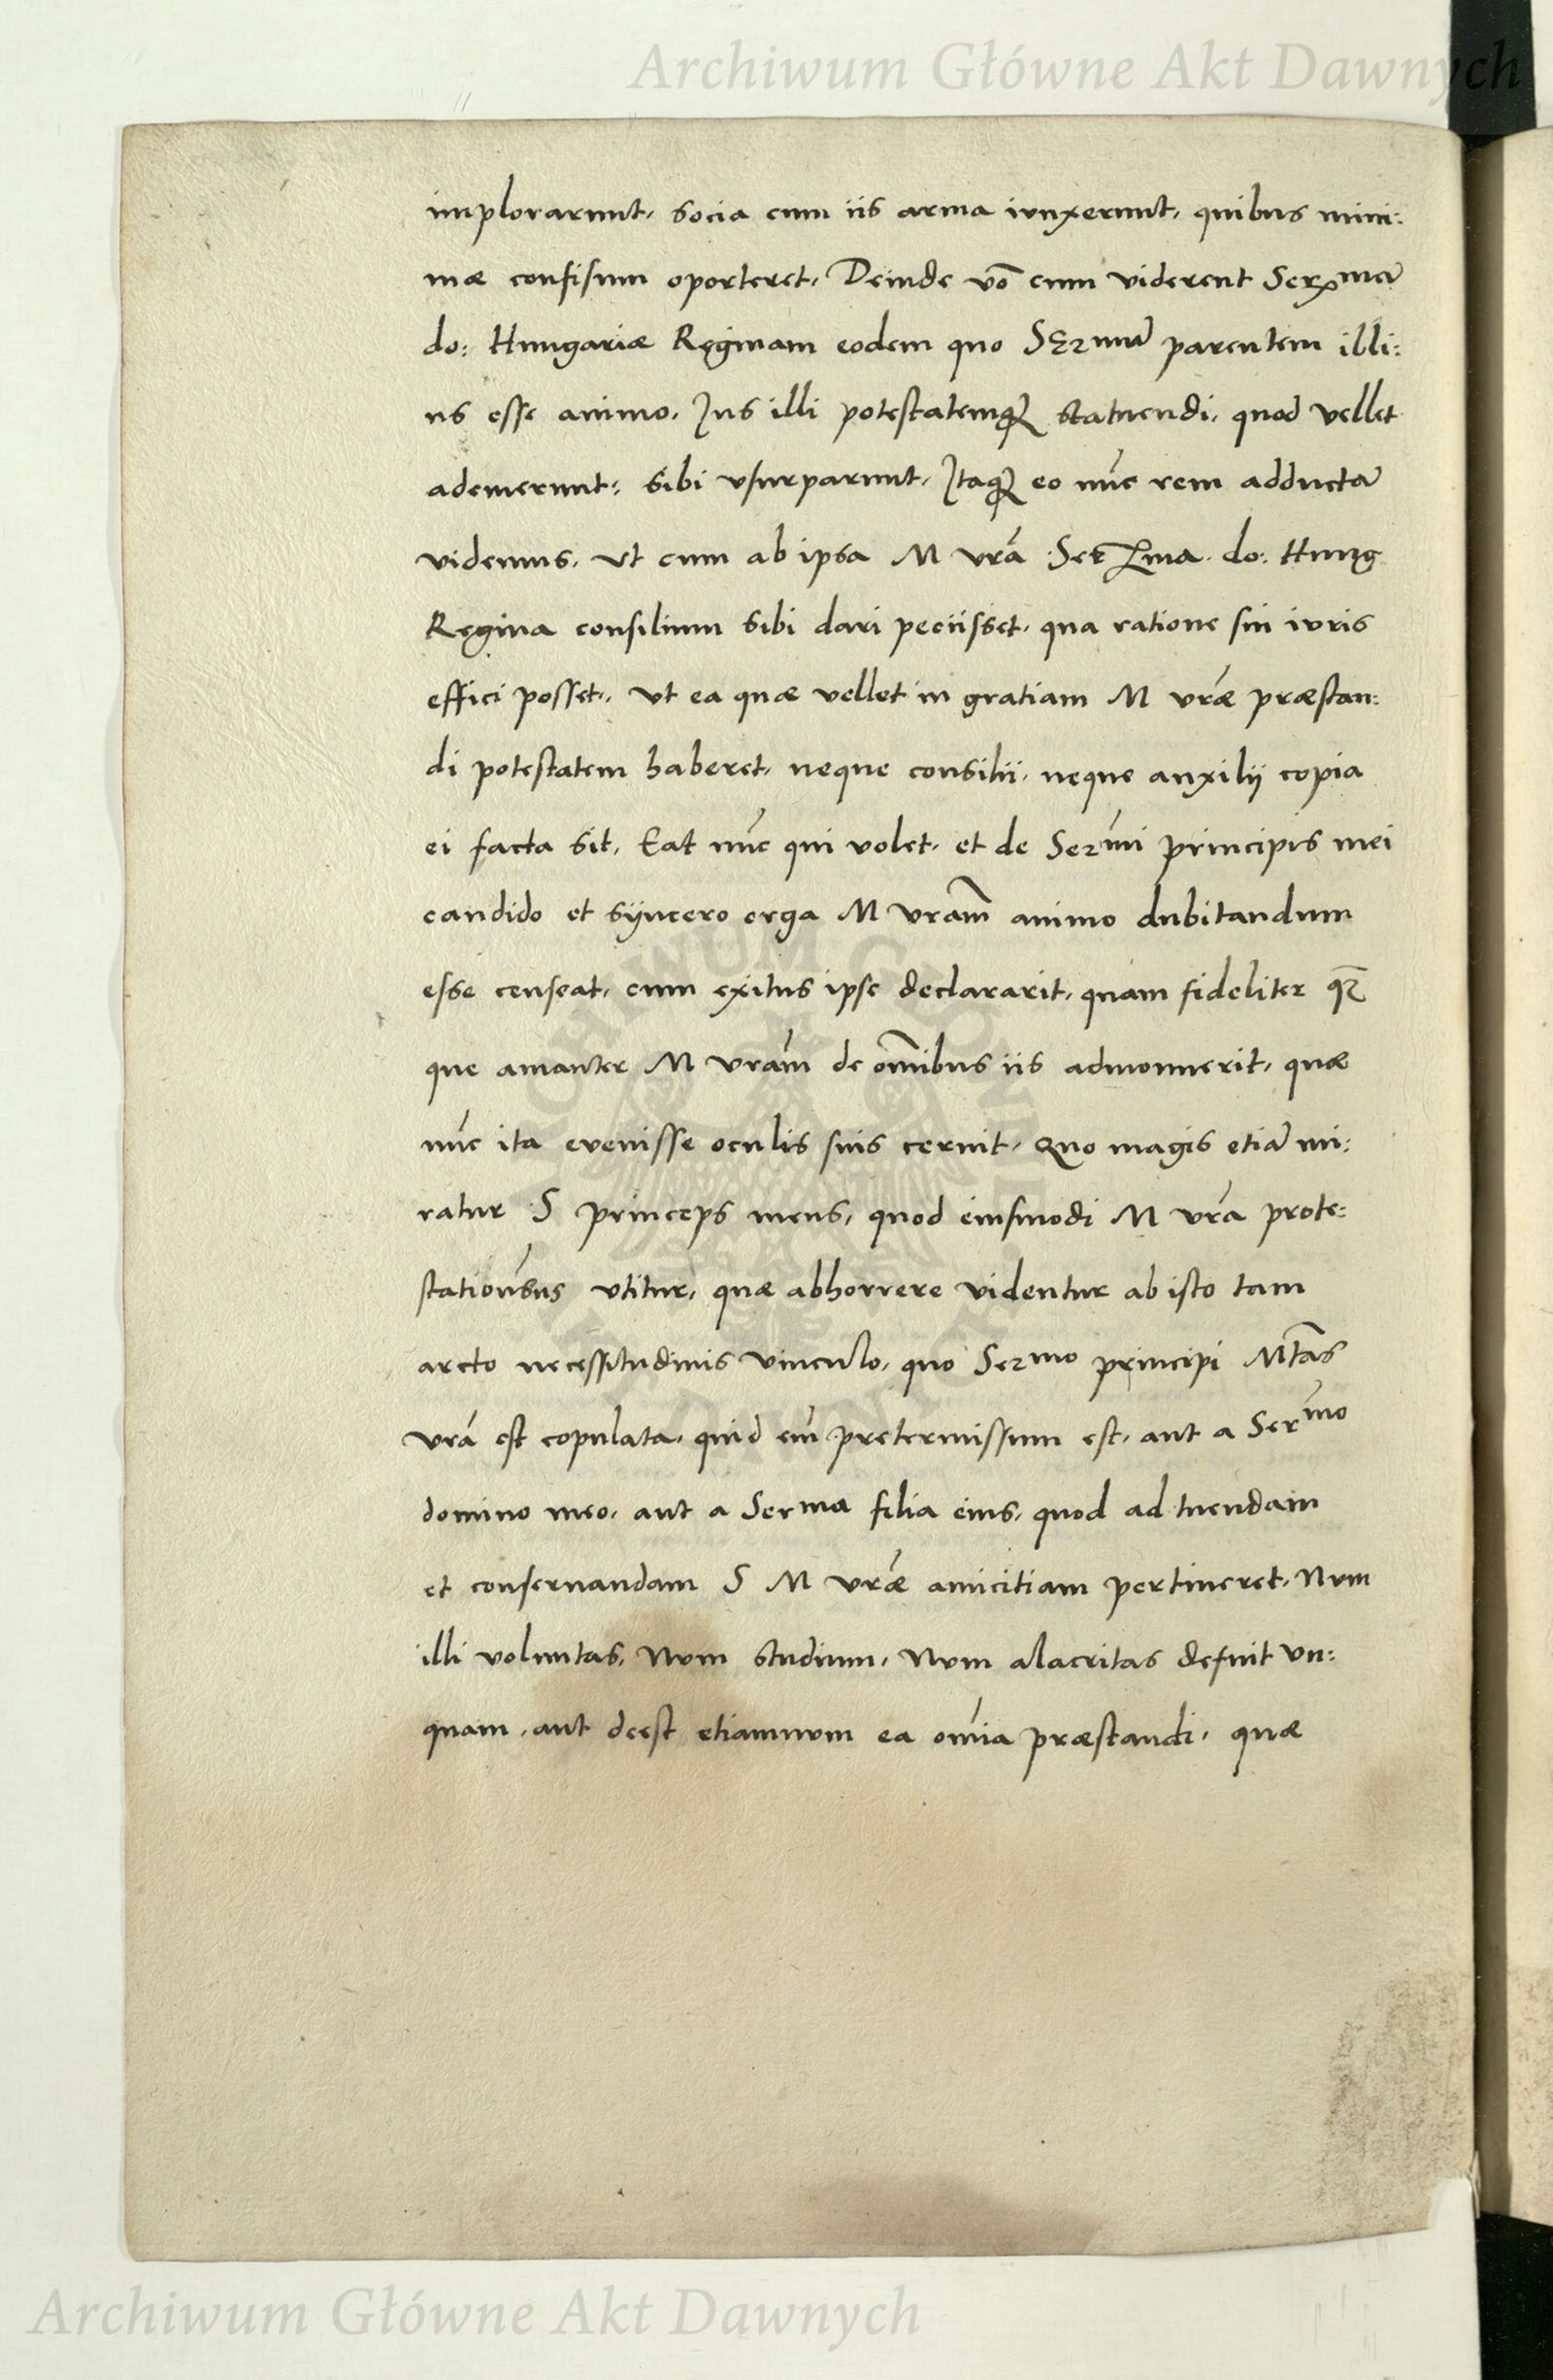 Archiwum Główne Akt Dawnych
implorarunt, socia cum iis arma iunxerunt, quibus mini:
mæ confisum oporteret, Deinde vo᷃ cum viderent Serꝫmā
do: Hungariæ Ręginam eodem quo SErmū parentem illi:
us esse animo, Ius illi potestatemq́ꝫ statuendi, quod vellet
ademerunt: sibi vsurparunt, Itaq́ꝫ eo nūc rem adductā
videmus, vt cum ab ipsa M vrā Serꝫma do: Hung
Ręgina consilium sibi dari peciisset, qua ratione sui iuris
effici posset, vt ea quæ vellet in gratiam M vrǣ præstan:
di potestatem haberet, neque consilii, neque auxilij copia
ei facta sit, Eat nūc qui volet, et de Sermi principis mei
candido et syncero erga M vram̄ animo dubitandum
esse censeat, cum exitus ipse declararit, quàm fideliter q̄ꝫ
que amanter M vrām de om̄ibus iis admonuerit, quæ
nūc ita evenisse oculis suis cernit, Quo magis etiā mi:
ratur S princeps meus, quod eiusmodi M vrā prote:
stationībus vtitur, quæ abhorrere videntur ab isto tam
arcto necessitudinis vinculo, quo Sermo principi Mt̄as
vrā est copulata, quid em̄ pretermissum est, aut a Serm̄o
domino meo, aut a Serma filia eius, quod ad tuendam
et conseruandam S M vrǣ amicitiam pertineret, Num
illi voluntas, Num studium, Num alacritas defuit vn:
quam, aut deest etiamnum ea om̄ia præstandi, quæ
Archiwum Główne Akt Dawnych